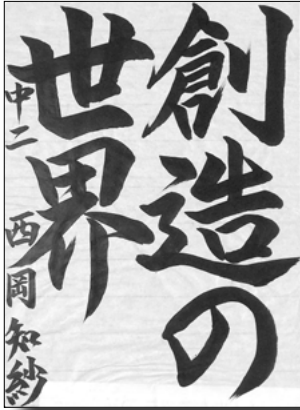 創造の
世界
中二 西岡知紗